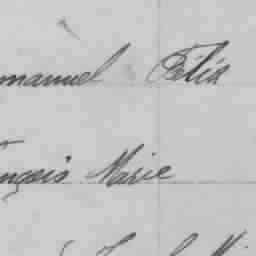 mmanuel Félix
ançois Marie